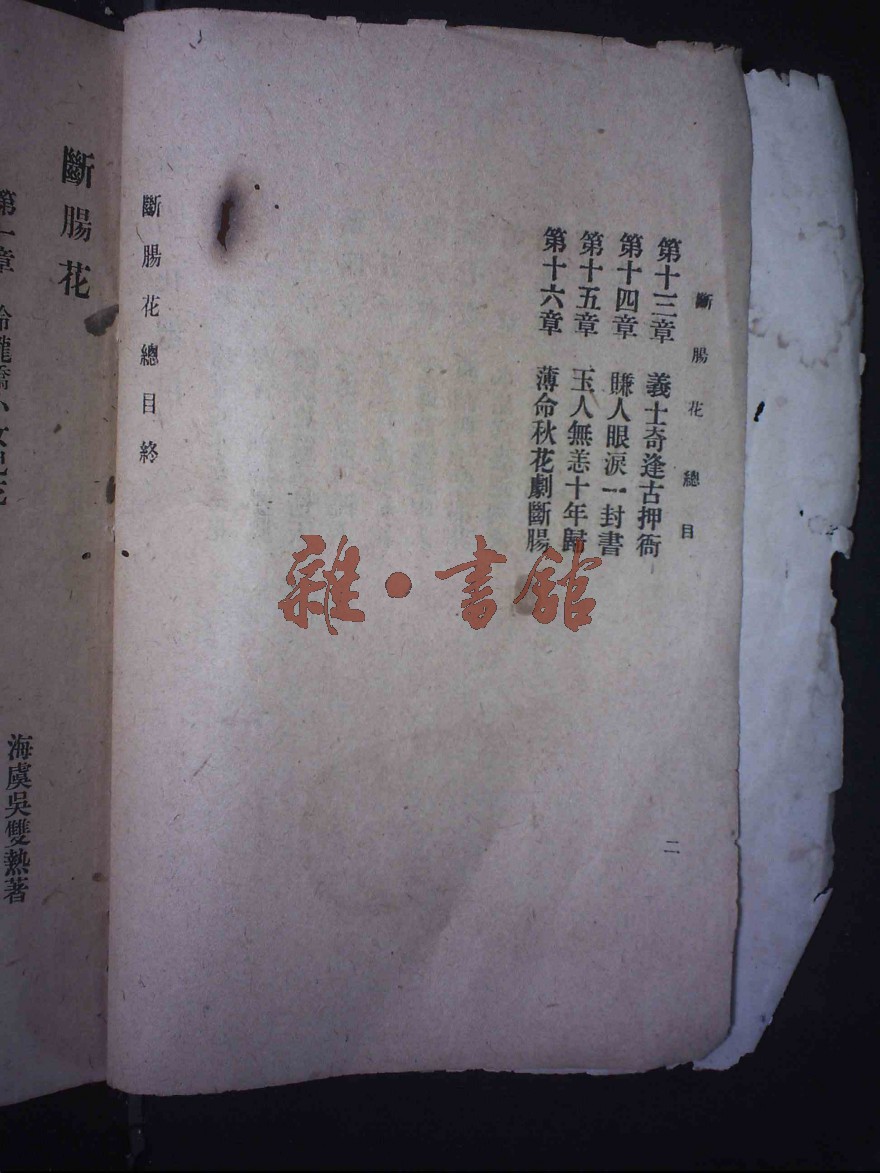 斷腸花總目
二
第十三章　義士奇逢古押衙
第十四章　賺人眼淚一封書
第十五章　玉人無恙十年歸
第十六章　薄命秋花劇斷腸
斷腸花總目終
雜·書館
斷腸花
海虞吳雙熱著
第一章